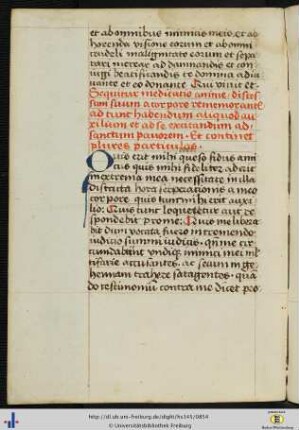 et ab omnibus inimicis meis et ab
horrenda visione eorum et ab omni
crudeli malignitate eorum et sepa
rari merear ad damnandis et con
iungi beatificandis te domina adiu
vante et eo donante Qui vivit et
Sequitur meditacio anime disces
sum suum a corpore rememorantis
ad tunc habendum aliquod au
xilium et ad se excitandum ad
sanctum pavorem Et continet
plures particulas
Quis erit mihi queso fidus ami
cus quis mihi fideliter aderit
in extrema mea necessitate in illa
districta hora separacionis a meo
corpore quis tunc mihi erit auxi
lio Quis tunc loquetur aut re
spondebit pro me Quis me libera
bit dum vocata fuero in tremendo
iudicio summi iudicis qn me cir
cumdabunt undique inimici mei
acusantes ac secum in ge
hennam trahere satagentes qua
do testimonium contra me dicet pro
http://dl.ub.uni-freiburg.de/diglit/hs345/0854
© Universitätsbibliothek Freiburg